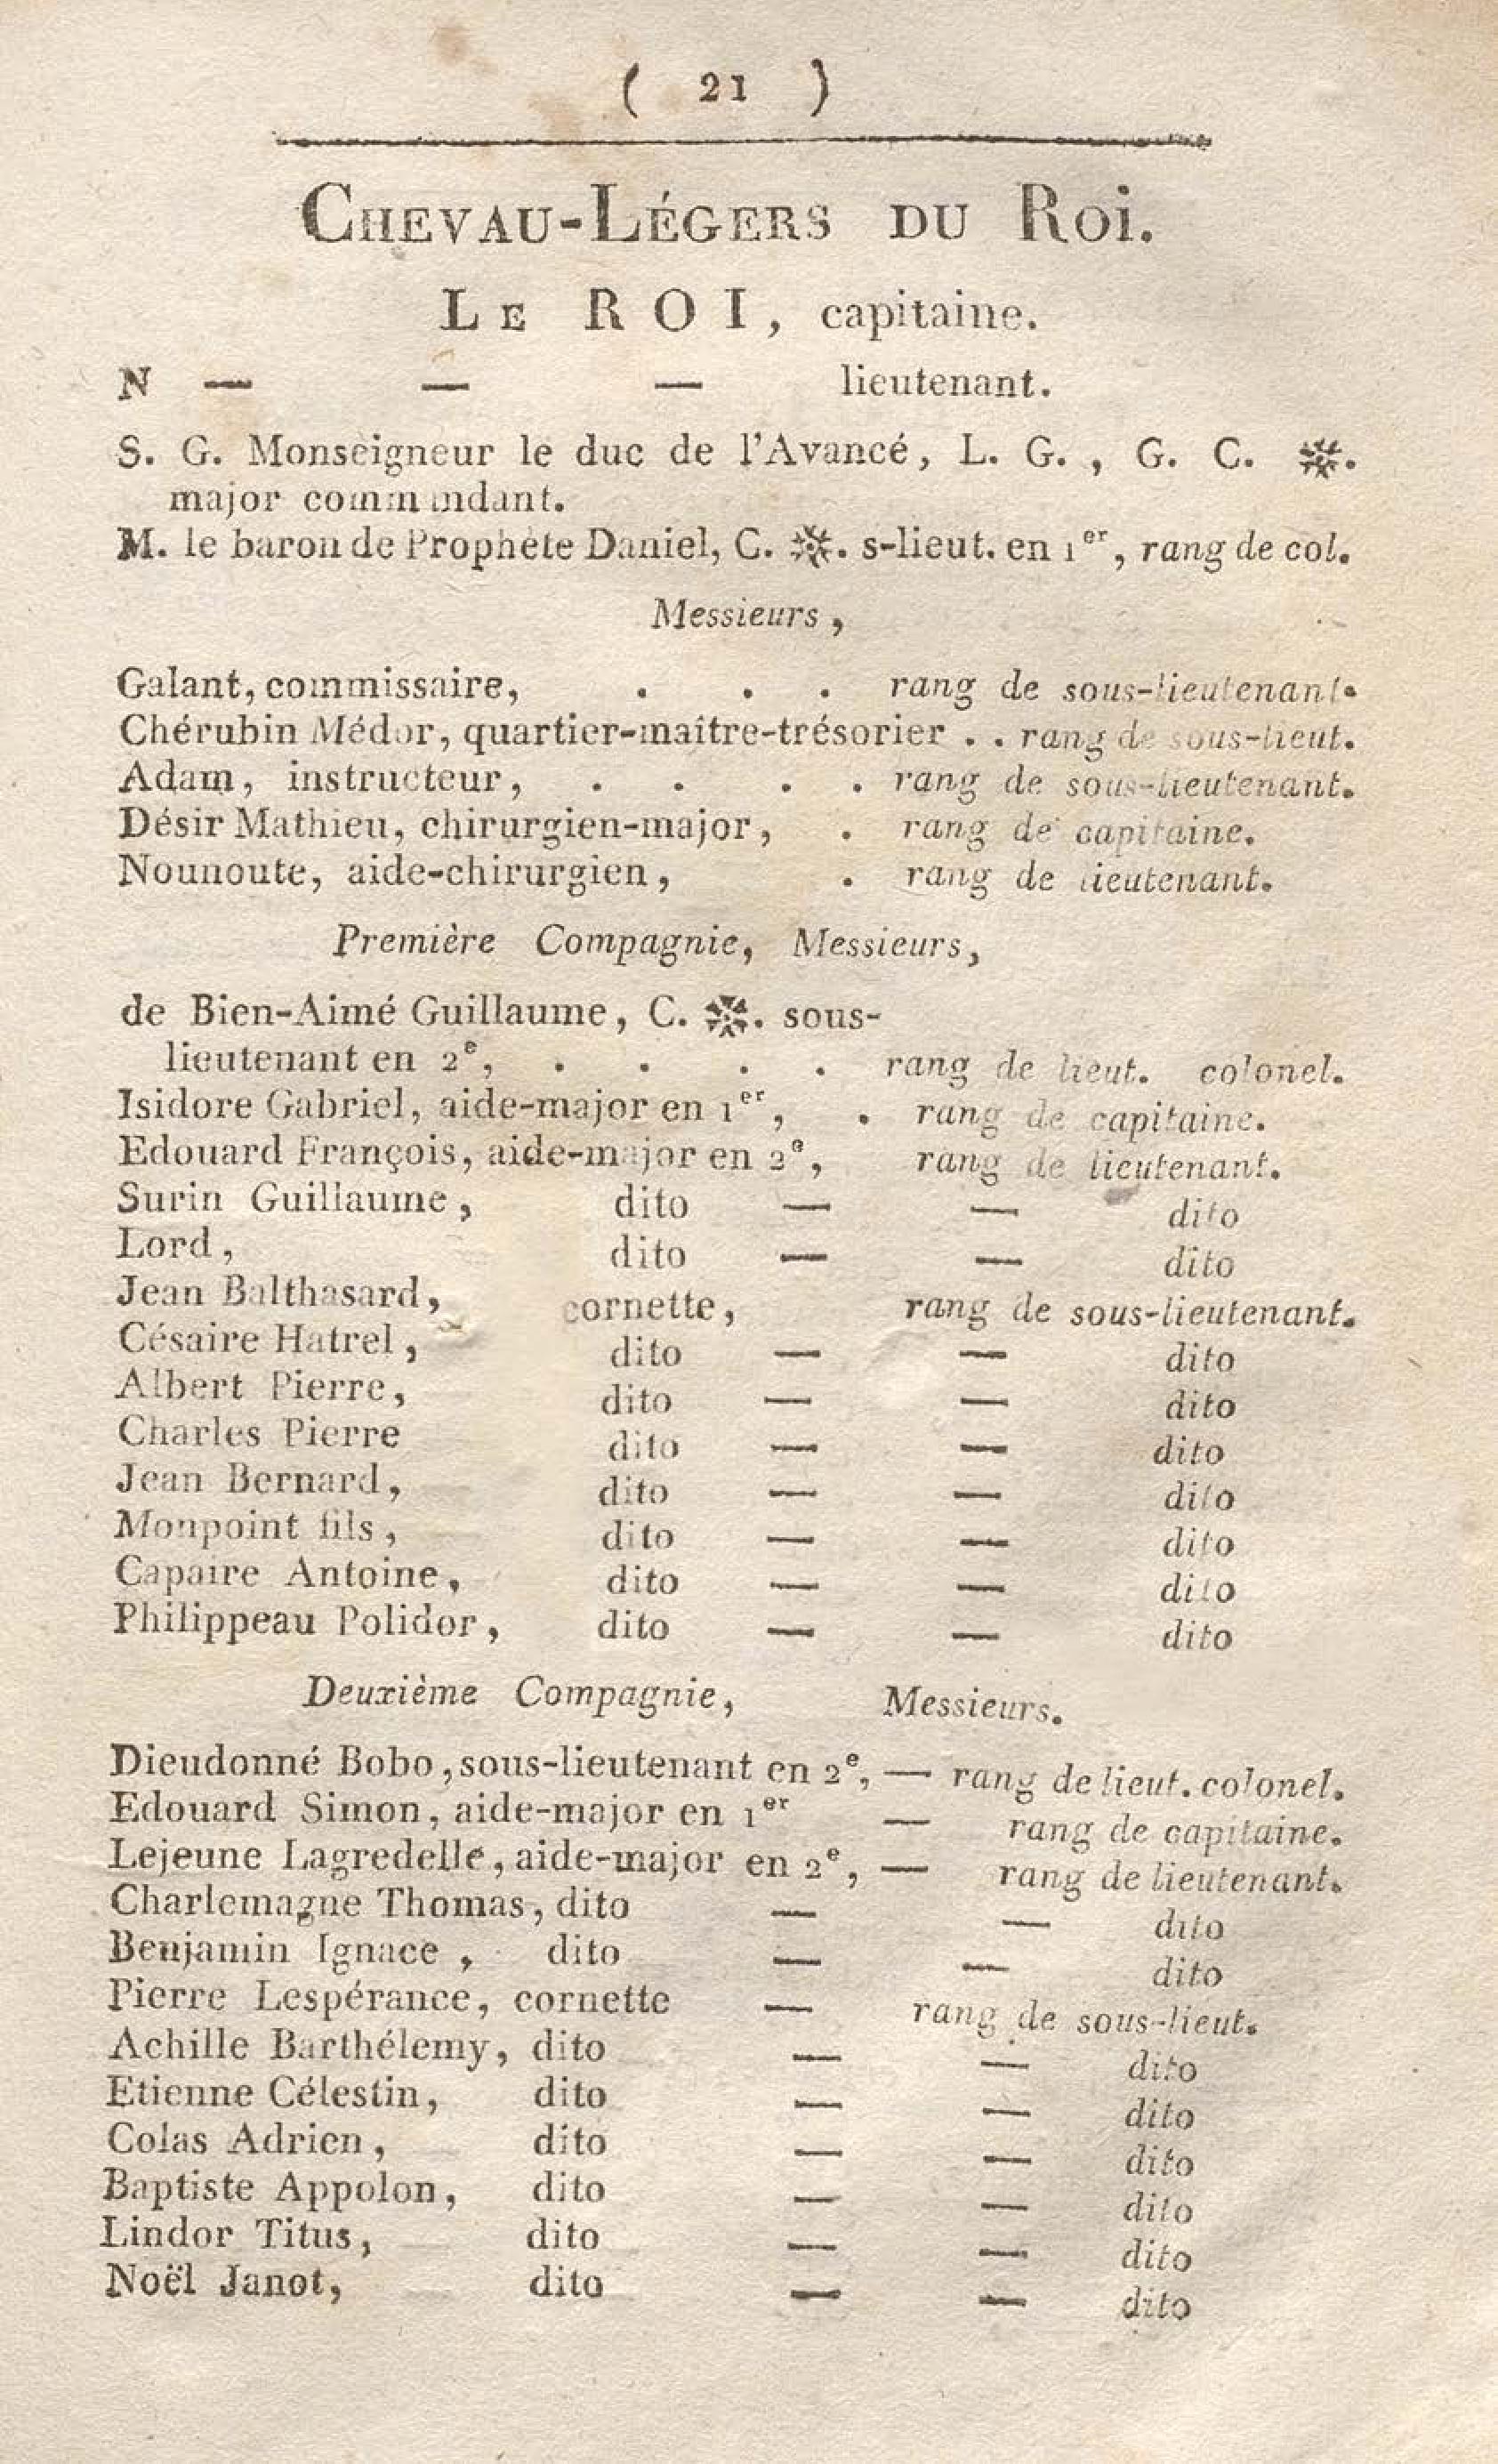 ( 21 )
CHEVAU-LÉGERS DU ROI.
LE ROI, capitaine.
N — — — lieutenant.
S. G. Monseigneur le duc de l'Avancé, L. G., G. C. ✠.
major commandant.
M. le baron de Prophète Daniel, C. ✠. s-lieut. en 1er, rang de col.
Messieurs,
Galant, commissaire, . . . rang de sous-lieutenant.
Chérubin Médor, quartier-maître-trésorier . . rang de sous-lieut.
Adam, instructeur, . . . . rang de sous-lieutenant.
Désir Mathieu, chirurgien-major, . rang de capitaine.
Nounoute, aide-chirurgien, . rang de lieutenant.
Première Compagnie, Messieurs,
de Bien-Aimé Guillaume, C. ✠. sous-
lieutenant en 2e, . . . . rang de lieut. colonel.
Isidore Gabriel, aide-major en 1er, . rang de capitaine.
Edouard François, aide-major en 2e, rang de lieutenant.
Surin Guillaume, dito — — dito
Lord, dito — — dito
Jean Balthasard, cornette, rang de sous-lieutenant.
Césaire Hatrel, dito — — dito
Albert Pierre, dito — — dito
Charles Pierre dito — — dito
Jean Bernard, dito — — dito
Monpoint fils, dito — — dito
Capaire Antoine, dito — — dito
Philippeau Polidor, dito — — dito
Deuxième Compagnie, Messieurs.
Dieudonné Bobo, sous-lieutenant en 2e, — rang de lieut. colonel.
Edouard Simon, aide-major en 1er — rang de capitaine.
Lejeune Lagredelle, aide-major en 2e, — rang de lieutenant.
Charlemagne Thomas, dito — — dito
Benjamin Ignace, dito — — dito
Pierre Lespérance, cornette — rang de sous-lieut.
Achille Barthélemy, dito — — dito
Etienne Célestin, dito — — dito
Colas Adrien, dito — — dito
Baptiste Appolon, dito — — dito
Lindor Titus, dito — — dito
Noël Janot, dito — — dito